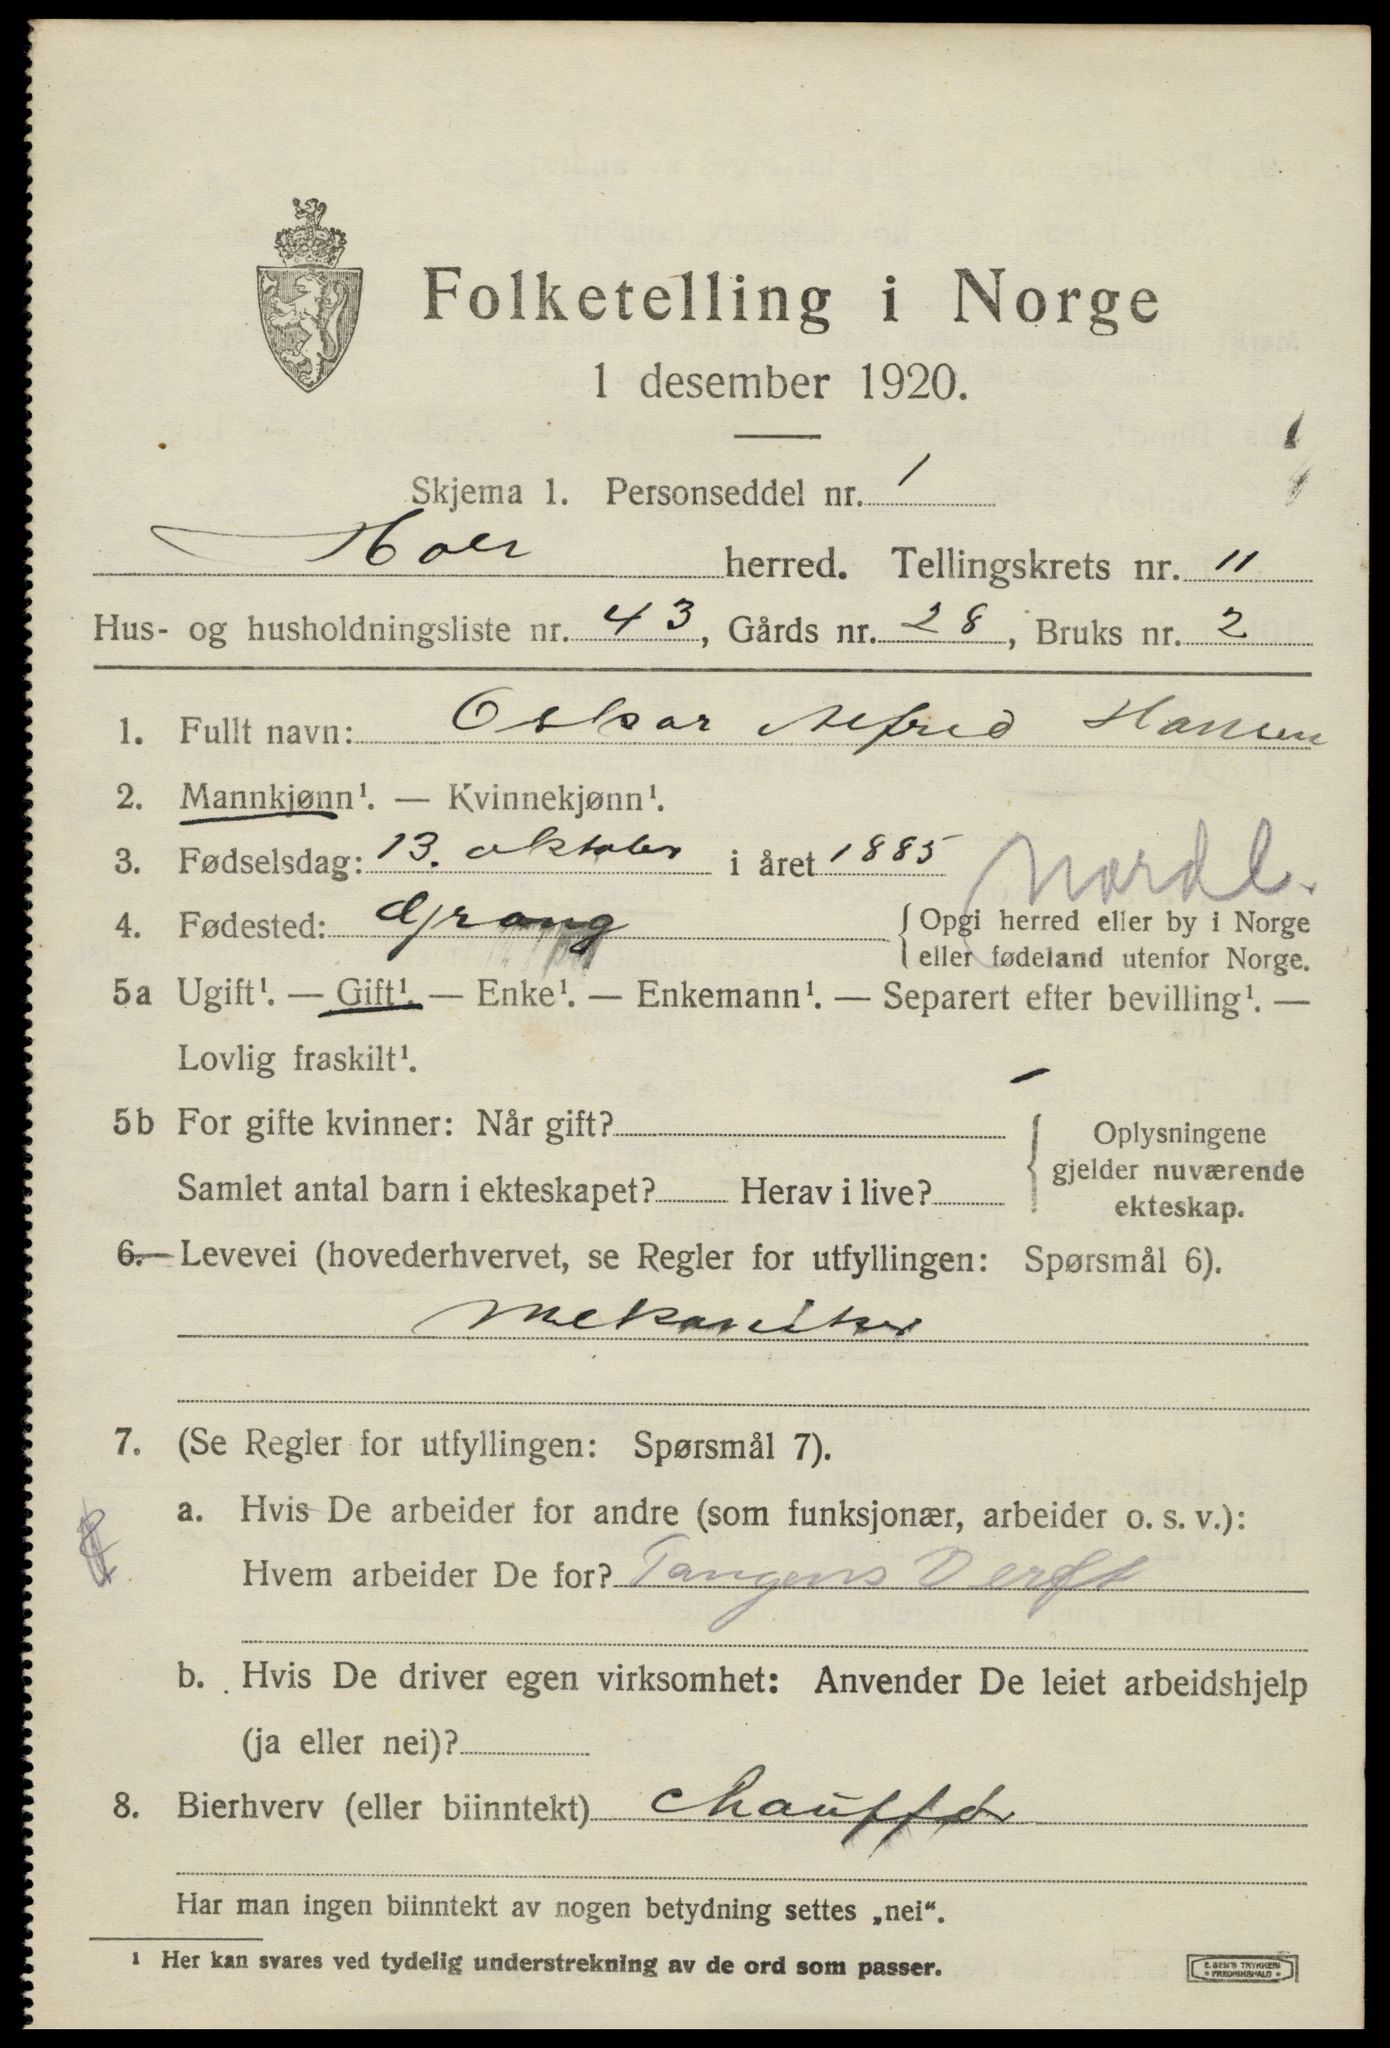 Folketelling i Norge
1 desember 1920.
Skjema 1. Personseddel nr. 1
herred. Tellingskrets nr. 11
Hus- og husholdningsliste nr. 43, Gårds nr. 28, Bruks nr. 2
1. Fullt navn: Oskar Alfred Hansen
2. Mannkjønn¹. — Kvinnekjønn¹.
3. Fødselsdag: 13. oktober i året 1885
Nordl.
4. Fødested: Grong { Opgi herred eller by i Norge
eller fødeland utenfor Norge.
5a Ugift¹. — Gift¹. — Enke¹. — Enkemann¹. — Separert efter bevilling¹. —
Lovlig fraskilt¹.
5b For gifte kvinner: Når gift? { Oplysningene
gjelder nuværende
Samlet antal barn i ekteskapet? Herav i live?
ekteskap.
6. Levevei (hovederhvervet, se Regler for utfyllingen: Spørsmål 6).
Mekaniker
7. (Se Regler for utfyllingen: Spørsmål 7).
a. Hvis De arbeider for andre (som funksjonær, arbeider o. s. v.):
Hvem arbeider De for? Tangens Verft
b. Hvis De driver egen virksomhet: Anvender De leiet arbeidshjelp
(ja eller nei)?
8. Bierhverv (eller biinntekt) chauffør
Har man ingen biinntekt av nogen betydning settes „nei“.
¹ Her kan svares ved tydelig understrekning av de ord som passer.
E. SEM'S TRYKKERI
FREDRIKSHALD